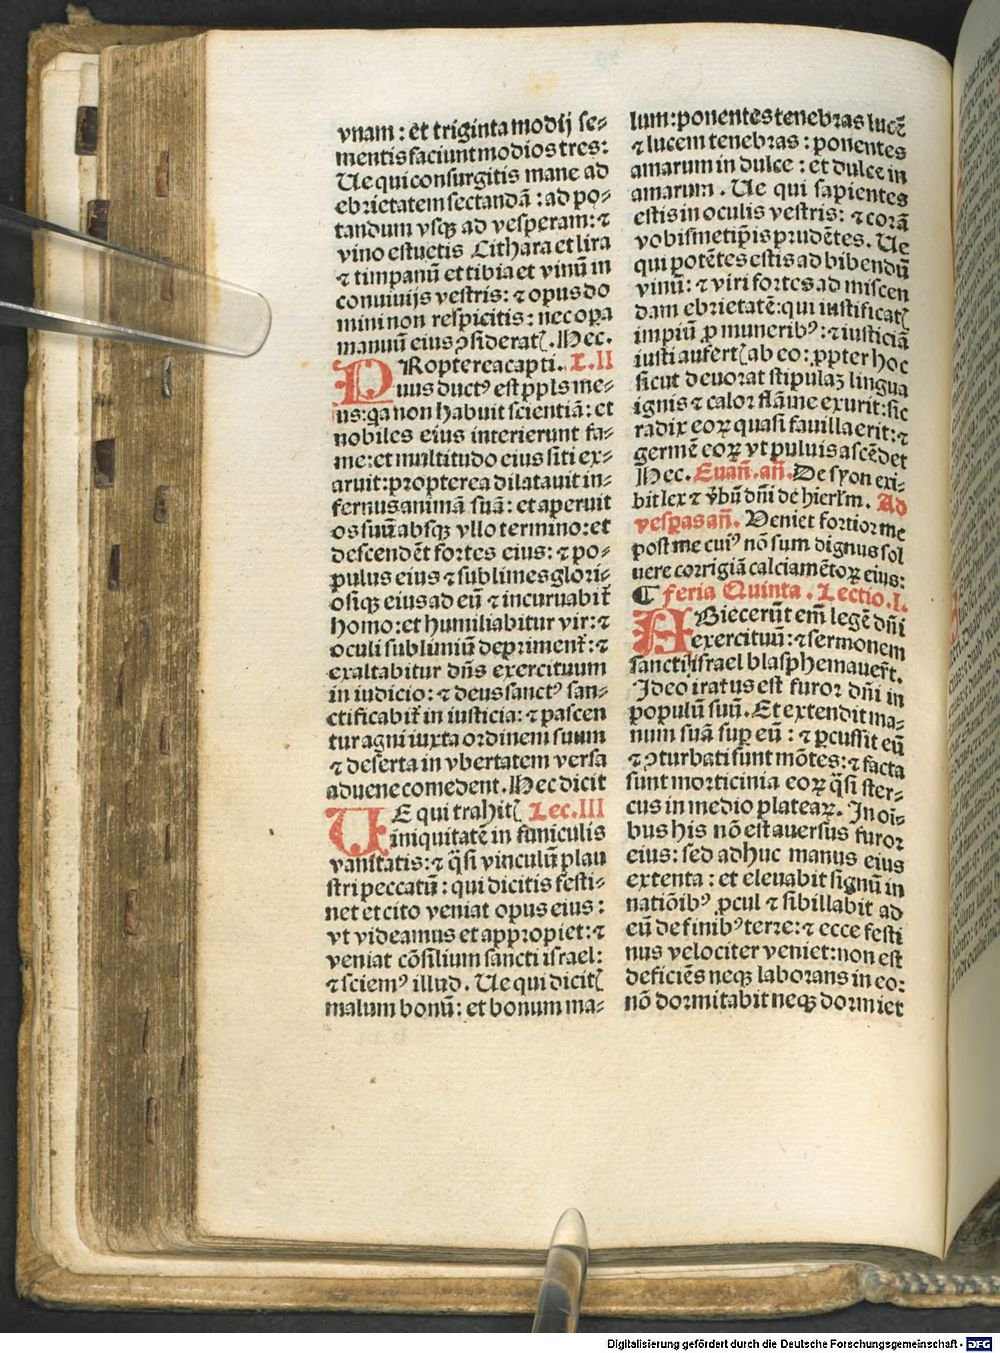 vnam: et triginta modij se⸗
mentis faciunt modios tres:
Ue qui consurgitis mane ad
ebrietatem sectandā: ad po⸗
tandum vsqꝫ ad vesperam: ⁊
vino estuetis Cithara et lira
⁊ timpanū et tibia et vinū in
conuiuijs vestris: ⁊ opus do
mini non respicitis: nec opa
manuū eius ꝯsideratꝭ. Hec.
PRopterea capti. L.II
uus ductꝰ est ppls me⸗
us: qa non habuit scientiā: et
nobiles eius interierunt fa⸗
me: et multitudo eius siti ex⸗
aruit: propterea dilatauit in⸗
fernus animā suā: et aperuit
os suū absqꝫ vllo termino: et
descendēt fortes eius: ⁊ po⸗
pulus eius ⁊ sublimes glori⸗
osiqꝫ eius ad eū ⁊ incuruabit̄
homo: et humiliabitur vir: ⁊
oculi sublimiū depriment̄: ⁊
exaltabitur dn̄s exercituum
in iudicio: ⁊ deus sanctꝰ san⸗
ctificabit̄ in iusticia: ⁊ pascen
tur agni iuxta ordinem suum
⁊ deserta in vbertatem versa
aduene comedent. Hec dicit
UE qui trahitꝭ Lec.III
iniquitatē in funiculis
vanitatis: ⁊ q̄si vinculū plau
stri peccatū: qui dicitis festi⸗
net et cito veniat opus eius:
vt videamus et appropiet: ⁊
veniat cōsilium sancti israel:
⁊ sciemꝰ illud. Ue qui dicitꝭ
malum bonū: et bonum ma⸗
lum: ponentes tenebras lucē
⁊ lucem tenebras: ponentes
amarum in dulce: et dulce in
amarum. Ue qui sapientes
estis in oculis vestris: ⁊ corā
vobismetip̄is prudētes. Ue
qui potētes estis ad bibendū
vinū: ⁊ viri fortes ad miscen
dam ebrietatē: qui iustificatꝭ
impiū ꝓ muneribꝰ: ⁊ iusticiā
iusti aufertꝭ ab eo: ꝓpter hoc
sicut deuorat stipulaꝫ lingua
ignis ⁊ calor flāme exurit: sic
radix eoꝝ quasi fauilla erit: ⁊
germē eoꝝ vt puluis ascēdet
Hec. Euan̄. an̄. De syon exi⸗
bit lex ⁊ v̄bū dn̄i de hierl̄m. Ad
vesperas an̄. Veniet fortior me
post me cuiꝰ nō sum dignus sol
uere corrigiā calciamētoꝝ eius:
¶ Feria Quinta. Lectio.I.
ABiecerūt em̄ legē dn̄i
exercituū: ⁊ sermonem
sancti israel blasphemauer̄t.
Ideo iratus est furor dn̄i in
populū suū. Et extendit ma⸗
num suā sup eū: ⁊ ꝑcussit eū
⁊ ꝯturbati sunt mōtes: ⁊ facta
sunt morticinia eoꝝ q̄si ster⸗
cus in medio plateaꝝ. In oī⸗
bus his nō est auersus furor
eius: sed adhuc manus eius
extenta: et eleuabit signū in
natiōibꝰ ꝓcul ⁊ sibillabit ad
eū de finibꝰ terre: ⁊ ecce festi
nus velociter veniet: non est
deficiēs neqꝫ laborans in eo:
nō dormitabit neqꝫ dormiet
Digitalisierung gefördert durch die Deutsche Forschungsgemeinschaft - DFG